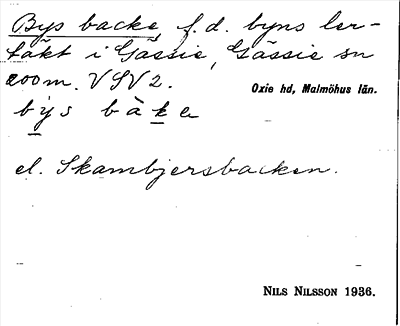 Bys backe f. d. byns ler-
täkt i Gässie, Gässie sn
200 m. VSV 2.
Oxie hd, Malmöhus län.
bys bàke
el. Skambjersbacken.
NILS NILSSON 1936.